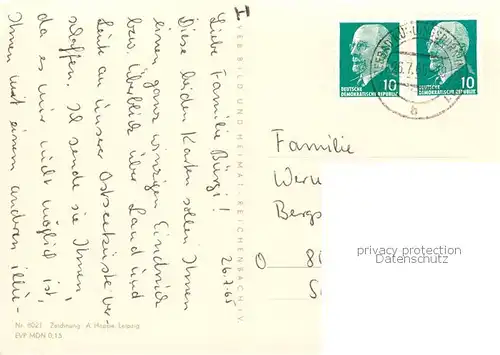 I
26.7.65
Liebe Familie Bürgi!
Diese beiden Karten sollen Ihnen
einen ganz winzigen Eindruck
bzw. Überblick über Land und
Leute an unserer Ostseeküste ver-
schaffen. Ich sende sie Ihnen,
da es mir nicht möglich ist,
Ihnen mit einem anderen illu-
VEB BILD UND HEIMAT REICHENBACH I. V.
Nr. 8021 Zeichnung: A. Hoppe, Leipzig
EVP MDN 0,15
DEUTSCHE
DEMOKRATISCHE REPUBLIK
10
DEUTSCHE
DEMOKRATISCHE REPUBLIK
10
Familie
Wern
Bergs
privacy protection
Datenschutz